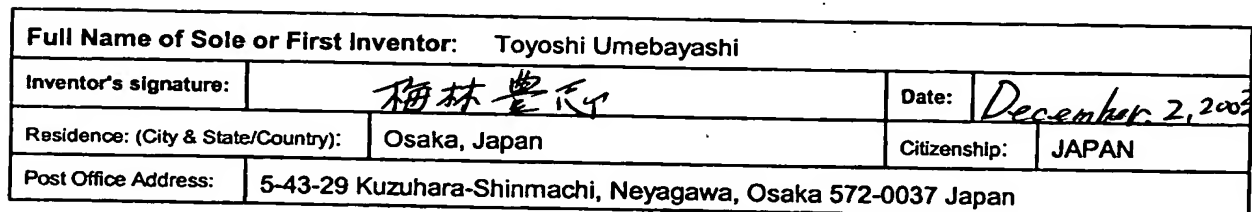 Full Name of Sole or First Inventor: Toyoshi Umebayashi
Inventor's signature: 梅林豊志 Date: December. 2, 2003
Residence: (City & State/Country): Osaka, Japan Citizenship: JAPAN
Post Office Address: 5-43-29 Kuzuhara-Shinmachi, Neyagawa, Osaka 572-0037 Japan